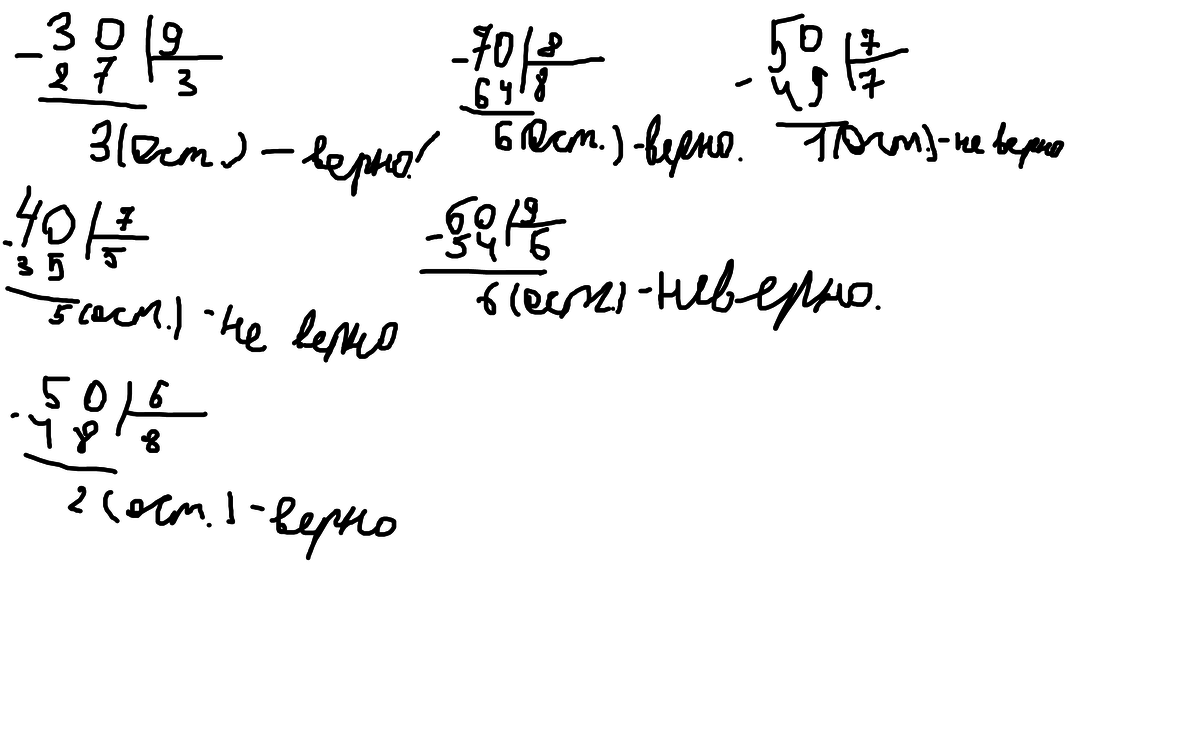 - 30 | 9 - 70 | 8 50 | 7
27 3 64 8 - 49 7
3 (ост.) - верно! 6 (ост.) - верно. 1 (ост.) - не верно
- 40 | 7 - 60 | 9
35 5 54 6
5 (ост.) - не верно 6 (ост.) - неверно.
- 50 | 6
48 8
2 (ост.) - верно